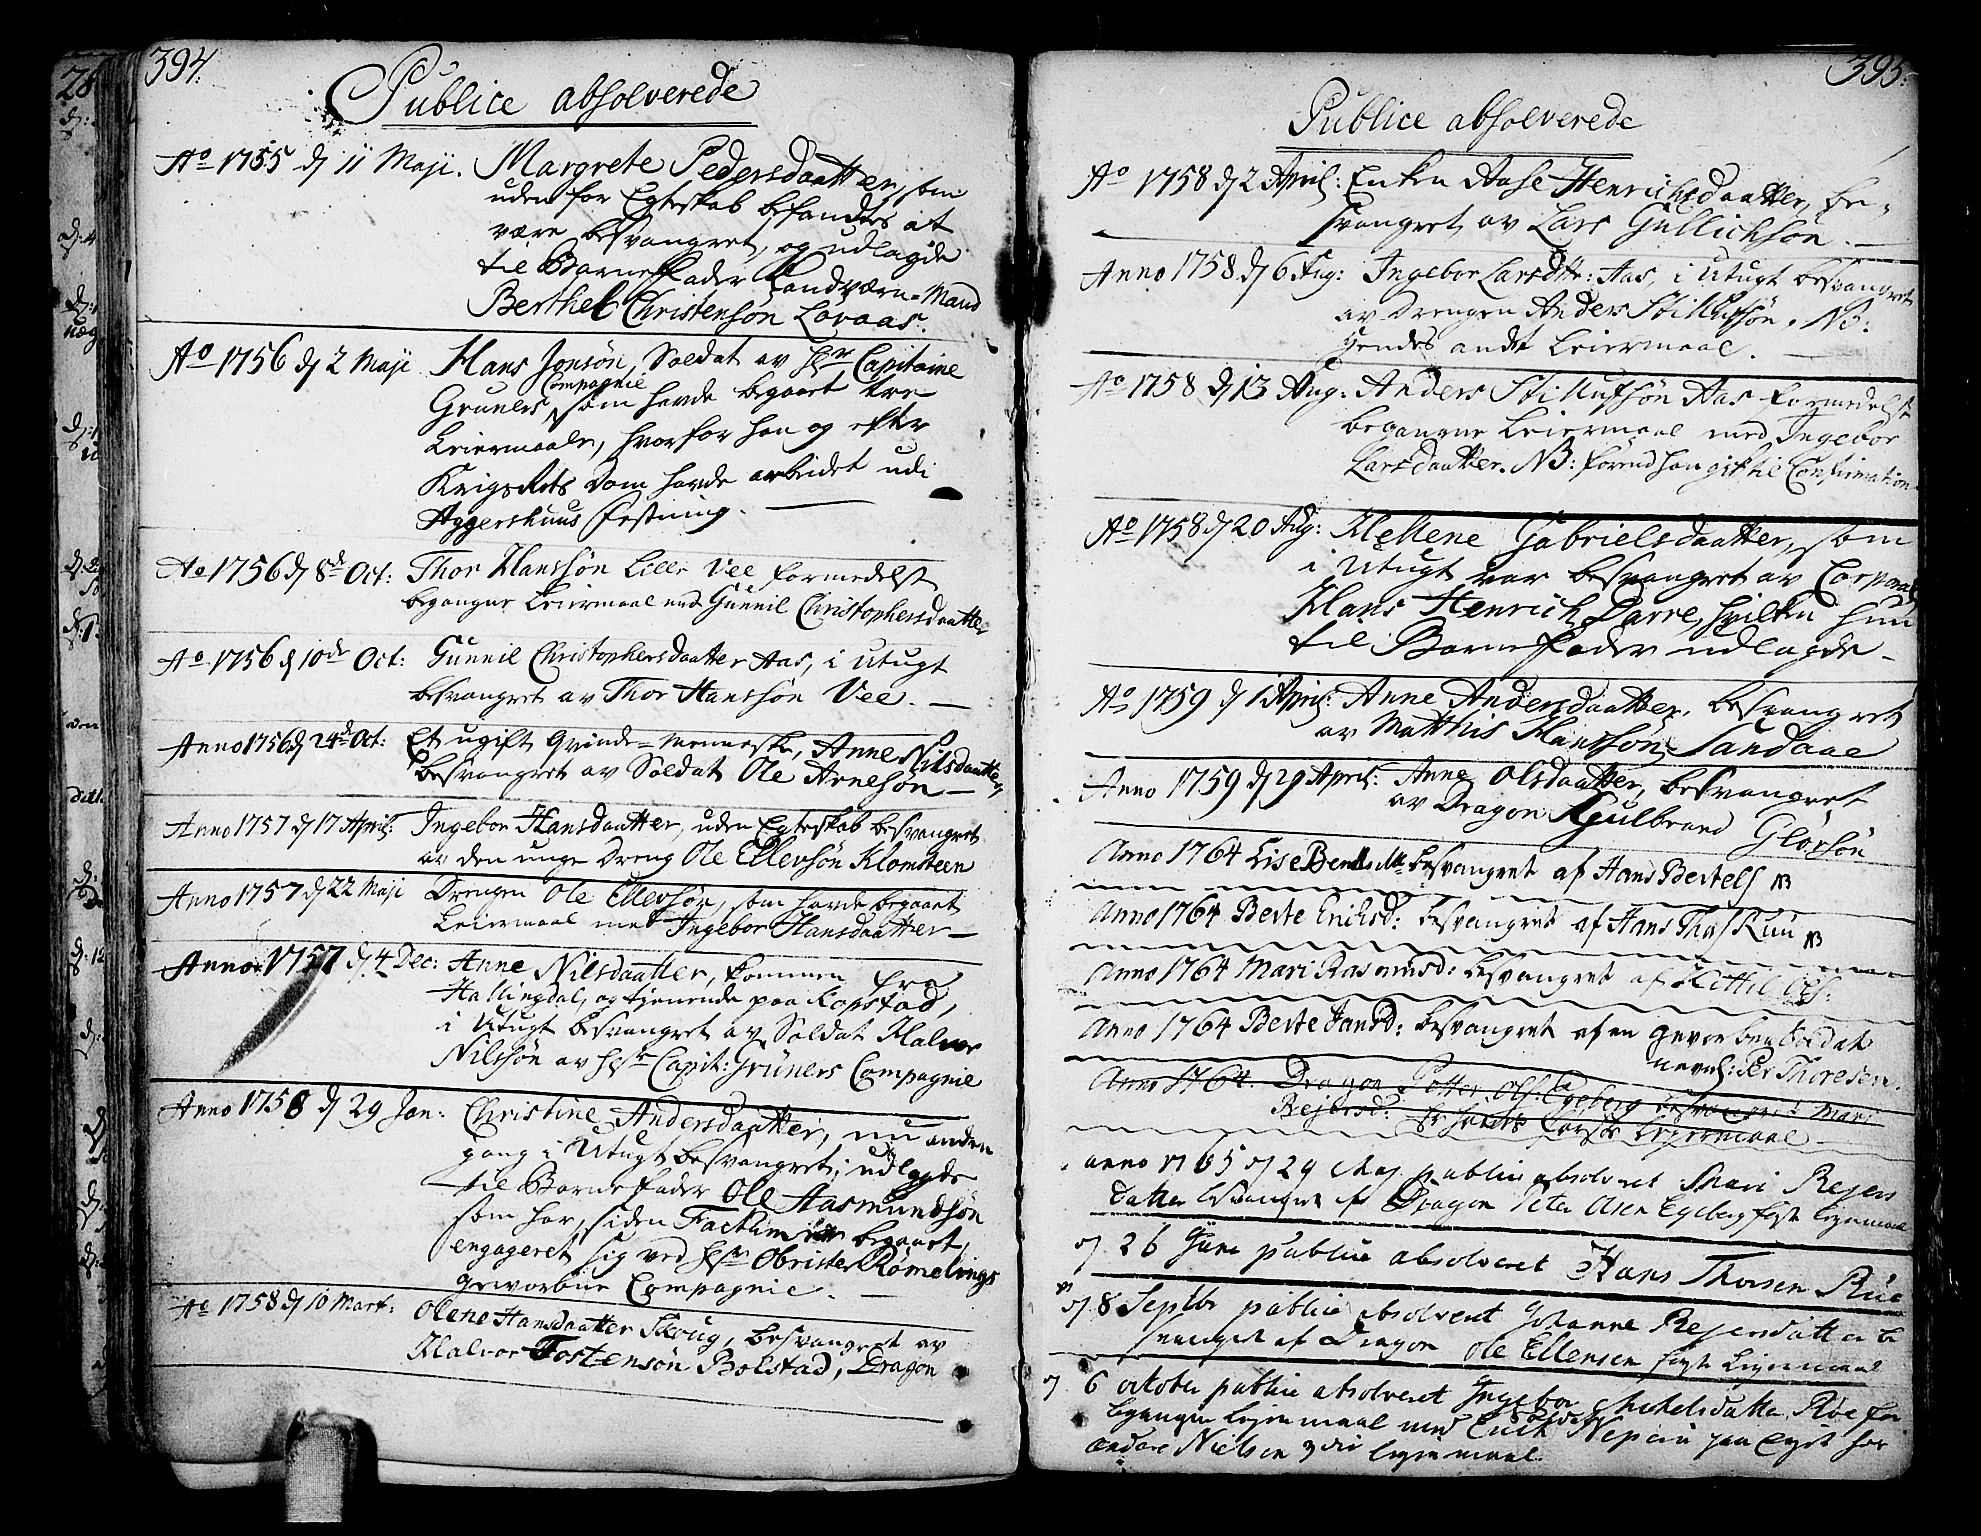 394.
Publice absolverede
Ao 1755 d 11 Maji. Margrete Pedersdaatter, som
uden for Egteskab befandtes at
være besvangret, og udlagde
til Barnefader Landværn-Mand
Berthel Christensøn Lovaas.
Ao 1756 d 2 Maji Hans Jonsøn, Soldat av Hr Capitaine
Compagnie
Gruners, som havde begaaet tre
Leiermaale, hvorfor han og efter
Krigsrets Dom havde arbeidet udi
Aggershuus Festning.
Ao 1756 d 8de Oct: Thor Hanssøn Lille Vee formedelst
begangne Leiermaal med Gunnil Christophersdaatter
Ao 1756 d 10de Oct: Gunnil Christophersdaatter Aas, i Utugt
besvangret av Thor Hanssøn Vee.
Anno 1756 d 24de Oct: Et ugift Qvinde-Menneske, Anne Nilsdaatter,
besvangret av Soldat Ole Arnesøn
Anno 1757 d 17 April: Ingebor Hansdaatter, uden Egteskab besvangret
av den unge Dreng Ole Ellevsøn Klomsteen
Anno 1757 d 22 Maji Drengen Ole Ellevsøn, som havde begaaet
Leiermaal med Ingebor Hansdaatter
Anno 1757 d 4 Dec: Anne Nilsdaatter, kommen fra
Hallingdal, og tjenende paa Kopstad,
i Utugt besvangret av Soldat Halvor
Nilssøn av Hr Capit: Grüners Compagnie
Anno 1758 d 29 Jan: Christine Andersdaatter, nu anden
gang i Utugt besvangret; udlagde
til Barnefader Ole Aasmundsøn
som har, siden Factum begaaet,
engageret sig ved Hr Obrister Rømelings
geworbne Compagnie.
Ao 1758 d 10 Mart: Olene Hansdaatter Skoug, besvangret av
Halvor Tostensøn Bolstad, Dragon
395.
Publice absolverede
Ao 1758 d 2 April: Enken Aase Henrichsdaatter, be-
svangret av Lars Gullichsøn.
Anno 1758 d 6 Aug: Ingebor Larsdtr: Aas, i Utugt besvangret
av Drengen Anders Stillufsøn. NB:
hendes andet Leiermaal.
Ao 1758 d 13 Aug: Anders Stillufsøn Aas formedelst
begangne Leiermaal med Ingebor
Larsdaatter. NB: forend han gik til Confirmation
Ao 1758 d 20 Aug: Mellene Gabrielsdaatter, som
i Utugt var besvangret av Corporal
Hans Henrich Darre, hvilken hun
til Barnefader udlagde
Ao 1759 d 1 April: Anne Andersdaatter, besvangret
av Matthis Hanssøn Sandaae
Anno 1759 d 29 April: Anne Olsdaatter, besvangret
av Dragon Gulbrand Glorsøn
Anno 1764 Lise besvangret af Hans Bertels NB
Anno 1764 Berte Erichsd: besvangret af Hans Thos Ruu NB
Anno 1764 Mari Rasmusd: besvangret af Kittil Ols:
Anno 1764 Berte Jansd: besvangret af en gevorben Soldat
navnl: Per Thoresen.
Anno 1764. Dragon Petter Ols: Egeberg besvangret Mari
Rejersd: første Leiermaal
anno 1765 d 29 Maj publice absolveret Mari Rejers
datter besvangret af Dragon Peter Olsen Egeberg første Leiermaal
d 26 Juni publice absolveret Hans Thorsen Rue
d 8 Septbr publice absolveret Johanne Rejersdatter be
svanget af Dragon Ole Ellensen første Leiermaal
d 6 october publice absolveret Ingebor Michelsdatter Roe for
begangen Leiermaal med paa Eget hos
andre Nielsen Leiermaal.